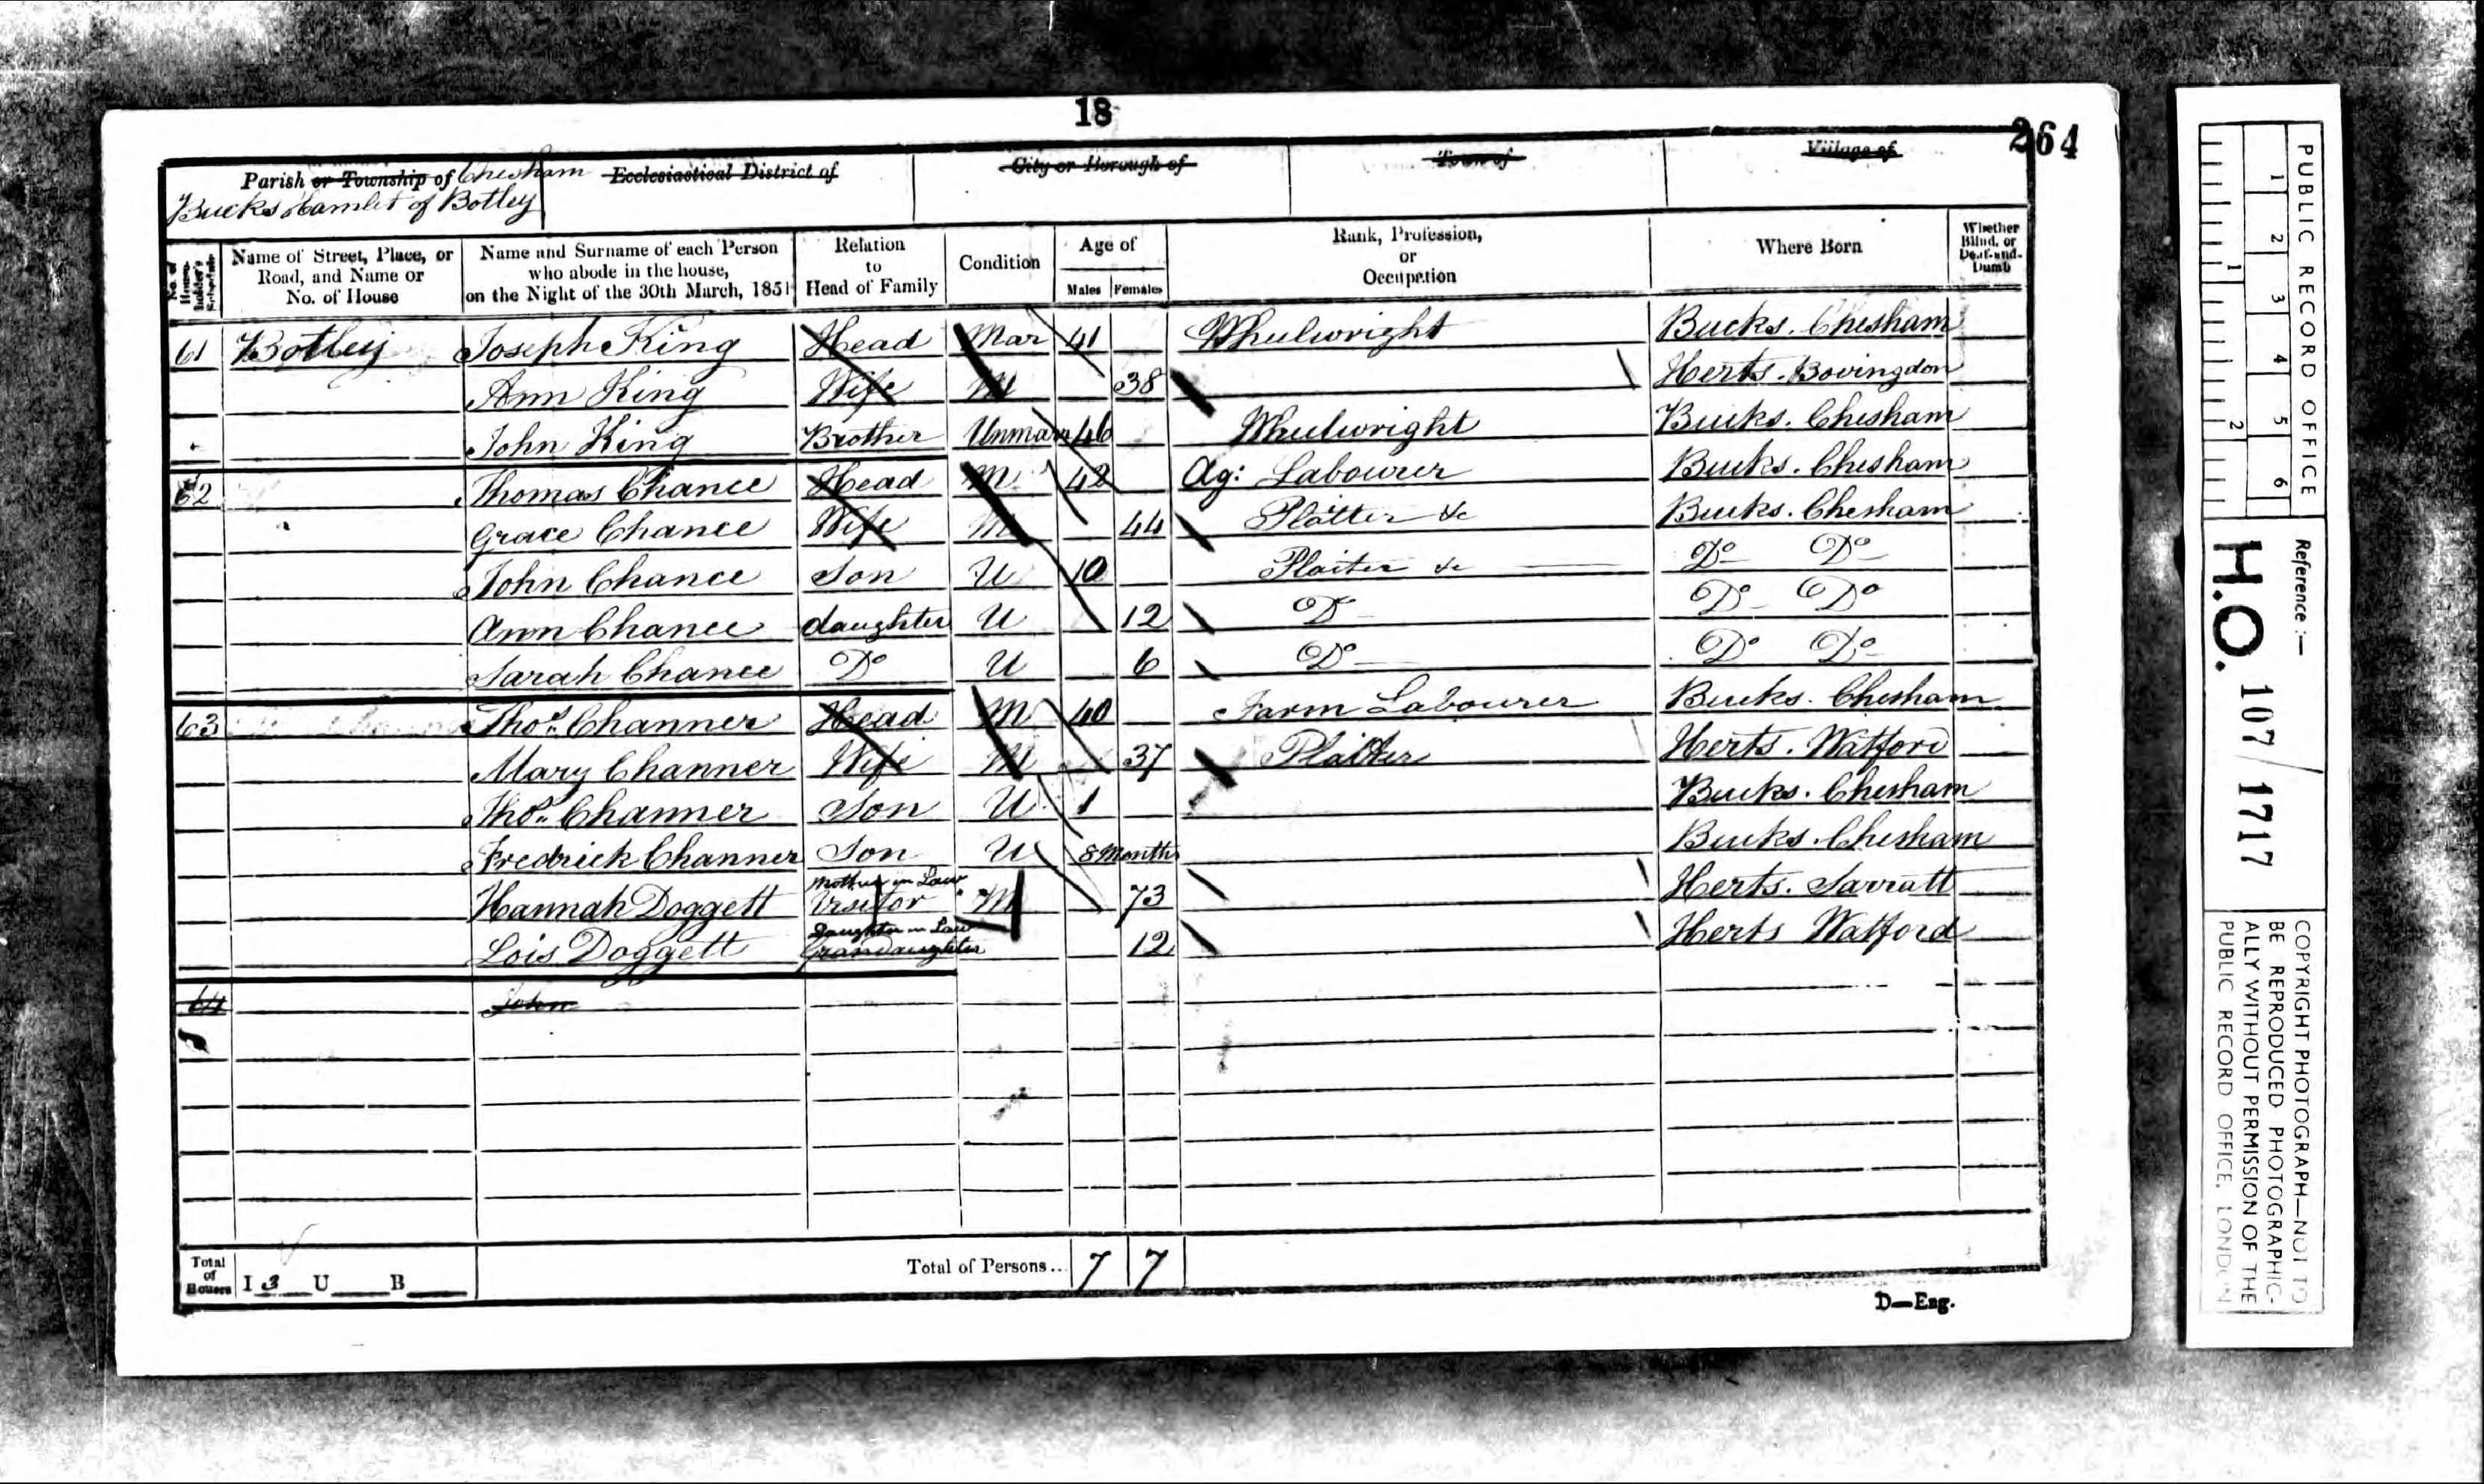 18
264
Parish or Township of Chesham
Bucks Hamlet of Botley
Ecclesiastical District of
City or Borough of
Town of
Village of
No. of House-holder's Schedule
Name of Street, Place, or Road, and Name or No. of House
Name and Surname of each Person who abode in the house, on the Night of the 30th March, 1851
Relation to Head of Family
Condition
Age of
Males Females
Rank, Profession, or Occupation
Where Born
Whether Blind, or Deaf-and-Dumb
61 Botley Joseph King Head Mar 41 Wheelwright Bucks. Chesham
Ann King Wife M 38 Herts. Bovingdon
John King Brother Unmarr 46 Wheelwright Bucks. Chesham
62 Thomas Chance Head M 42 Ag: Labourer Bucks. Chesham
Grace Chance Wife M 44 Platter &c Bucks. Chesham
John Chance Son U 10 Plaiter &c Do Do
Ann Chance daughter U 12 Do Do Do
Sarah Chance Do U 6 Do Do Do
63 Thos. Channer Head M 40 Farm Labourer Bucks. Chesham
Mary Channer Wife M 37 Platter Herts. Watford
Thos. Channer Son U 1 Bucks. Chesham
Fredrick Channer Son U 8 Months Bucks. Chesham
Hannah Doggett Mother in Law Visitor M 73 Herts. Sarratt
Lois Doggett Daughter in Law Grandaughter 12 Herts Watford
64 John
Total of Houses I 3 U B
Total of Persons... 7 7
D—Eng.
PUBLIC RECORD OFFICE
1 2 3 4 5 6
1 2
Reference :—
H.O. 107/1717
COPYRIGHT PHOTOGRAPH—NOT TO
BE REPRODUCED PHOTOGRAPHIC-
ALLY WITHOUT PERMISSION OF THE
PUBLIC RECORD OFFICE, LONDON